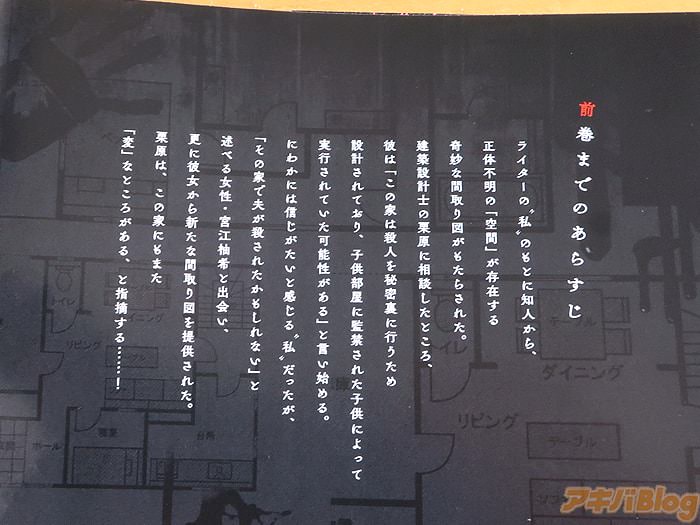 前巻までのあらすじ
ライターの〝私〟のもとに知人から、
正体不明の「空間」が存在する
奇妙な間取り図がもたらされた。
建築設計士の栗原に相談したところ、
彼は「この家は殺人を秘密裏に行うため
設計されており、子供部屋に監禁された子供によって
実行されていた可能性がある」と言い始める。
にわかには信じがたいと感じる〝私〟だったが、
「その家で夫が殺されたかもしれない」と
述べる女性・宮江柚希と出会い、
更に彼女から新たな間取り図を提供された。
栗原は、この家にもまた
「変」なところがある、と指摘する……!
トイレ
リビング
ダイニング
テーブル
寝室
台所
ホール
トイレ
ダイニング
リビング
テーブル
ソファ
アキバBlog